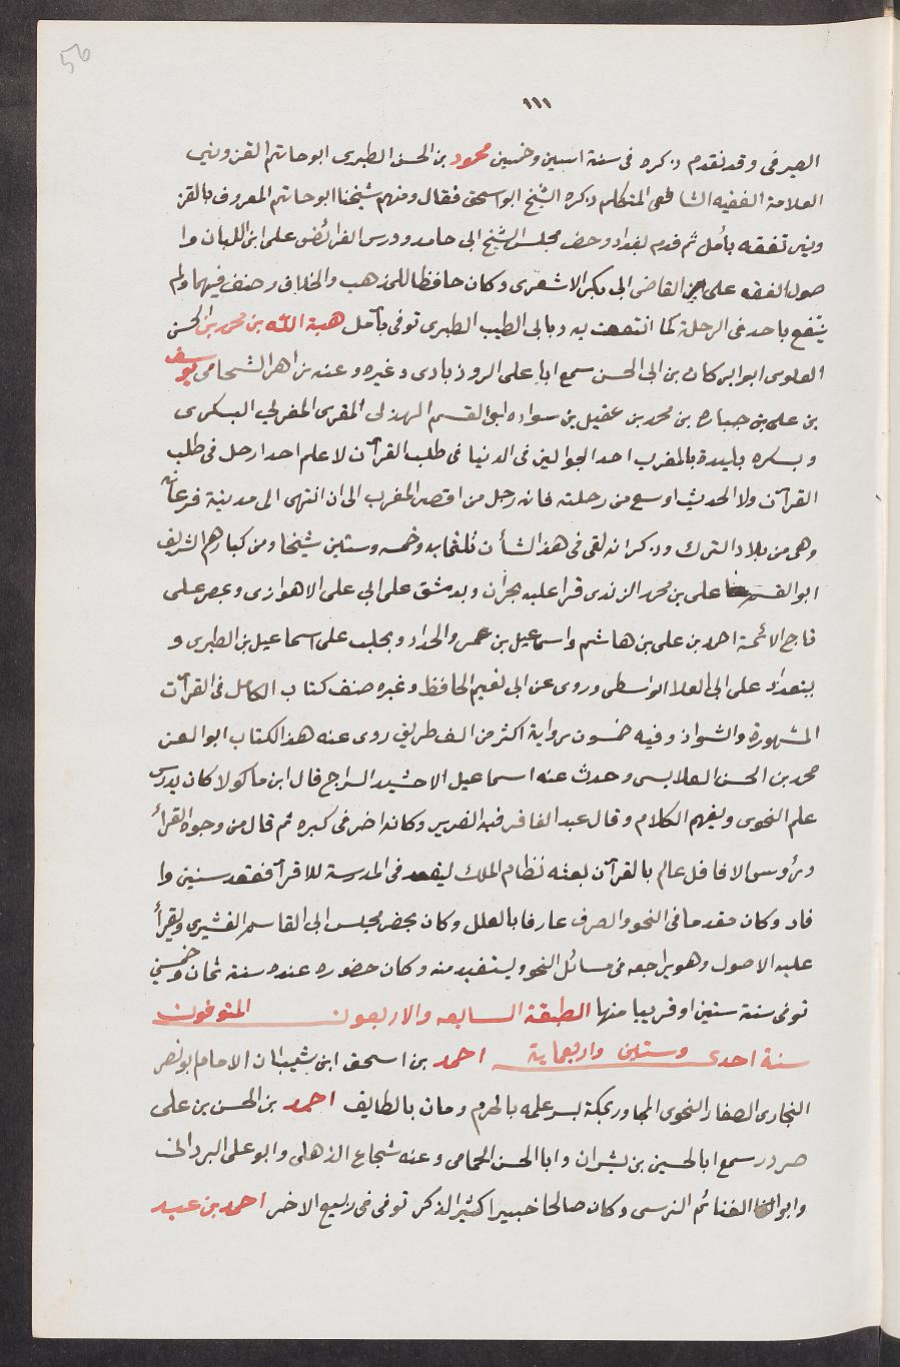 56
١١١
الصيرفى وقد تقدم ذكره فى سنة اسين وخسين محمود بن الحسن الطبرى ابو حاتم القزوينى
العلامة الفقيه الشافعى المتكلم ذكره الشيخ ابو اسحق فقال ومنهم شيخنا ابو حاتم المعروف بالقز
وينى تفقه بآمل ثم قدم بغداد وحضر مجلس الشيخ ابى حامد ودرس الفرائض على ابن اللبان وا
صول الفقه على القاضى ابى بكر الاشعرى وكان حافظا للمذهب والخلاف وصنف فيهما ولم
ينتفع باحد فى الرحلة كما انتفعت به وبابى الطيب الطبرى توفى بآمل هبة الله بن محمد بن الحسن
العلوى ابو البركات بن ابى الحسن سمع ابا على الروذبادى وغيره وعنه زاهر الشحامى يوسف
بن على بن جباره بن محمد بن عقيل بن سواده ابو القسم الهذلى المقرى المغربى البسكرى
وبسكره بليدة بالمغرب احد الجوالين فى الدنيا فى طلب القرآن لا علم احدا رحل فى طلب
القرآن ولا الحديث اوسع من رحلته فانه رحل من اقصر المغرب الى ان انتهى الى مدينة فرغانه
وهى من بلاد الترك وذكر انه لقى فى هذا الشأن ثلثمايه وخمسه وستين شيخا ومن كبارهم الشريف
ابو القسم على بن محمد الزندى قرا عليه بحران وبدمشق على ابى على الاهوازى وبمصر على
تاج الائمة احمد بن على بن هاشم واسماعيل بن عمرو الحداد وبحلب على اسماعيل بن الطبرى و
ببغداد على ابى العلا الواسطى وروى عن ابى نعيم الحافظ وغيره صنف كتاب الكامل فى القرآت
المشهورة والشواذ وفيه خسون رواية اكثر من الف طريق روى عنه هذا الكتاب ابو العز
محمد بن الحسن العلابسى وحدث عنه اسماعيل الاخشيد السراج قال ابن ماكولا كان يدرس
علم النحوى ويفهم الكلام وقال عبد الغافر فيه الضرير وكانه اضر فى كبره ثم قال من وجوه القرأ
ورؤوس الافاضل عالم بالقرآن بعثه نظام الملك ليقعد فى المدرسة للاقرآ فقعد سنين وا
فاد وكان مقدما فى النحو والصرف عارفا بالعلل وكان يحضر مجلس ابى القاسم القشيرى ويقرأ
عليه الاصول وهو يراجعه فى مسائل النحو ويستفيد منه وكان حضوره عنده سنة ثمان وخمسين
توفى سنة ستين او قريبا منها الطبقة السابعه والاربعون المتوفون
سنة احدى وستين واربعماية احمد بن اسحق ابن شيبان الامام ابو نصر
البخارى الصفار النحوى المجاور بمكة بسر علمه بالحرم ومات بالطايف احمد بن الحسن بن على
صردر سمع ابا الحسين بن بشران وابا الحسن الحمامى وعنه شجاع الذهلى وابو على البردانى
وابو الغنائم النرسى وكان صالحا خبيرا كثير الذكر توفى فى ربيع الاخر احمد بن عبد